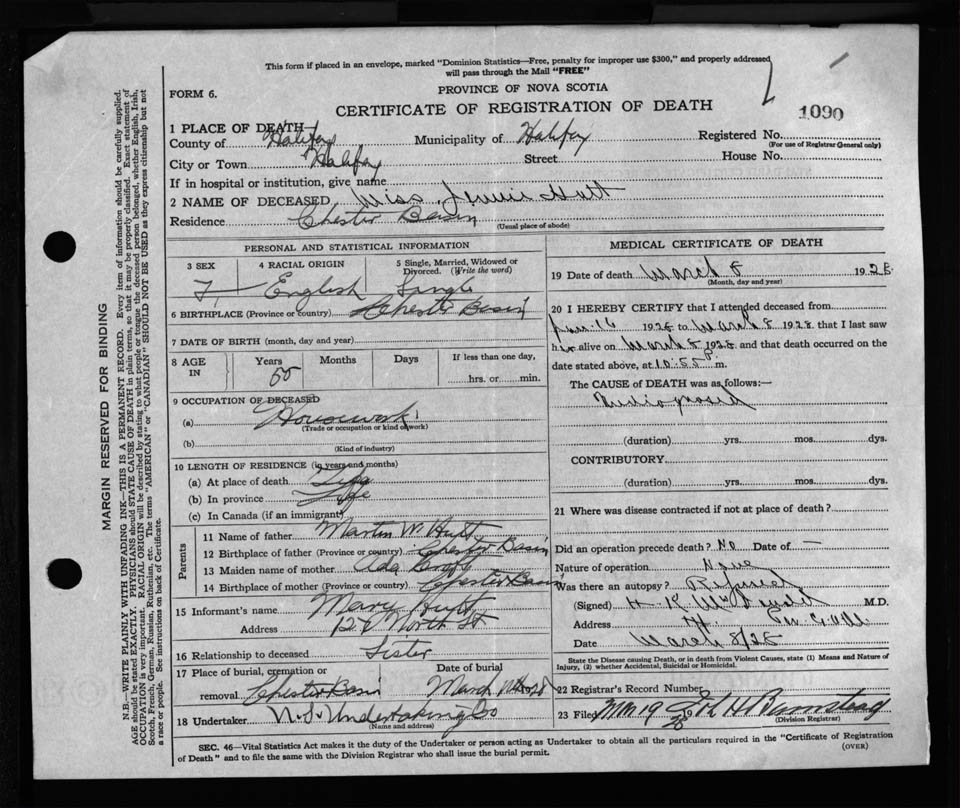 This form if placed in an envelope, marked "Dominion Statistics—Free, penalty for improper use $300," and properly addressed
will pass through the Mail "FREE"
PROVINCE OF NOVA SCOTIA
FORM 6.
CERTIFICATE OF REGISTRATION OF DEATH
1090
1 PLACE OF DEATH—
County of Halifax Municipality of Halifax Registered No.
(For use of Registrar General only)
City or Town Halifax Street House No.
If in hospital or institution, give name
2 NAME OF DECEASED Miss Jennie Hutt
Residence Chester Basin
(Usual place of abode)
PERSONAL AND STATISTICAL INFORMATION
3 SEX 4 RACIAL ORIGIN 5 Single, Married, Widowed or Divorced. (Write the word)
F. English Single
6 BIRTHPLACE (Province or country) Chester Basin
7 DATE OF BIRTH (month, day and year)
8 AGE IN Years Months Days If less than one day,
hrs. or min.
9 OCCUPATION OF DECEASED
(a) Housework
(Trade or occupation or kind of work)
(b)
(Kind of industry)
10 LENGTH OF RESIDENCE (in years and months)
(a) At place of death Life
(b) In province Life
(c) In Canada (if an immigrant)
Parents
11 Name of father Martin W. Hutt
12 Birthplace of father (Province or country) Chester Basin
13 Maiden name of mother Ada
14 Birthplace of mother (Province or country) Chester Basin
15 Informant's name Mary Hutt
Address North St
16 Relationship to deceased Sister
17 Place of burial, cremation or Date of burial
removal Chester Basin March 1928
18 Undertaker N.S. Undertaking Co
(Name and address)
MEDICAL CERTIFICATE OF DEATH
19 Date of death March 8 1928
(Month, day and year)
20 I HEREBY CERTIFY that I attended deceased from
16 1928 to March 8 1928 that I last saw
her alive on March 8 1928 and that death occurred on
date stated above, at 10:55 p m.
The CAUSE of DEATH was as follows:—
(duration) yrs. mos. dys.
CONTRIBUTORY
(duration) yrs. mos. dys.
21 Where was disease contracted if not at place of death?
Did an operation precede death? No Date of —
Nature of operation None
Was there an autopsy? Refused
(Signed) H. K. M.D.
Address
Date March 8/28
State the Disease causing Death, or in death from Violent Causes, state (1) Means and Nature of
Injury, (2) whether Accidental, Suicidal or Homicidal.
22 Registrar's Record Number
23 Filed Mar 19 28
(Division Registrar)
SEC. 46—Vital Statistics Act makes it the duty of the Undertaker or person acting as Undertaker to obtain all the particulars required in the "Certificate of Registration
of Death" and to file the same with the Division Registrar who shall issue the burial permit.
(OVER)
MARGIN RESERVED FOR BINDING
N.B.—WRITE PLAINLY WITH UNFADING INK—THIS IS A PERMANENT RECORD. Every item of information should be carefully supplied.
AGE should be stated EXACTLY. PHYSICIANS should STATE CAUSE OF DEATH in plain terms, so that it may be properly classified. Exact statement of
OCCUPATION is very important. RACIAL ORIGIN will be described by stating to what people or tongue the deceased person belonged, whether English, Irish,
Scotch, French, German, Russian, Ruthenian, etc. The terms "AMERICAN" or "CANADIAN" SHOULD NOT BE USED as they express citizenship but not
a race or people. See instructions on back of Certificate.